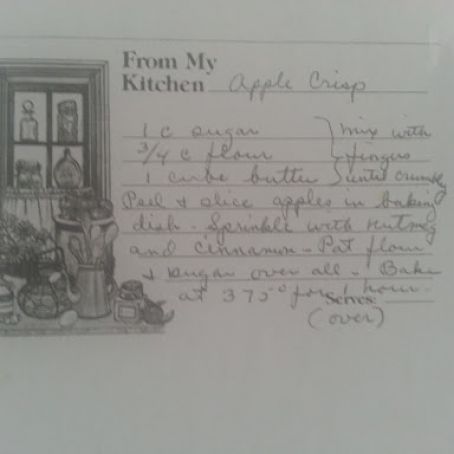 From My
Kitchen Apple Crisp
1 c sugar } mix with
3/4 c flour } fingers
1 cube butter } until crumbly
Peel & slice apples in baking
dish - Sprinkle with nutmeg
and cinnamon - Pat flour
& sugar over all - Bake
at 375° for 1 hour.
Serves:
(over)